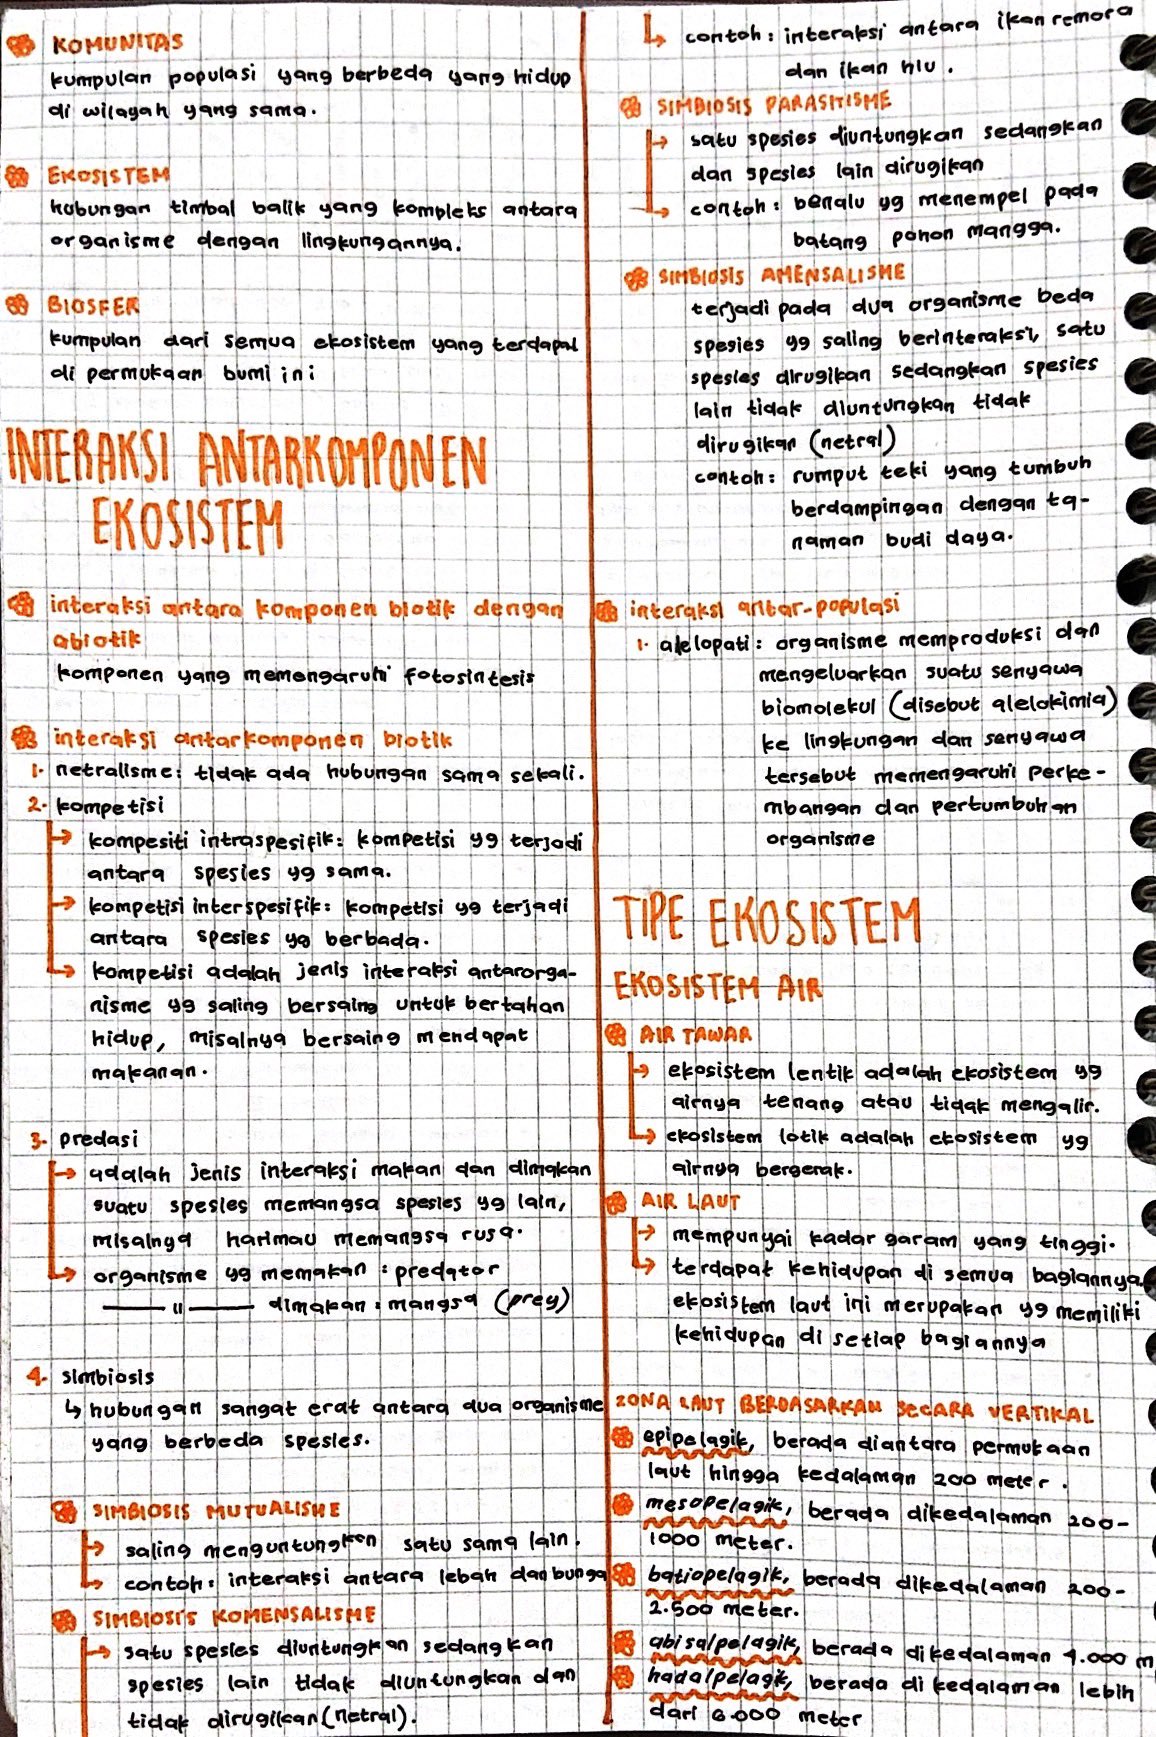 KOMUNITAS
kumpulan populasi yang berbeda yang hidup
di wilayah yang sama.
EKOSISTEM
hubungan timbal balik yang kompleks antara
organisme dengan lingkungannya.
BIOSFER
kumpulan dari semua ekosistem yang terdapat
di permukaan bumi ini
INTERAKSI ANTARKOMPONEN
EKOSISTEM
interaksi antara komponen biotik dengan
abiotik
komponen yang memengaruhi fotosintesis
interaksi antarkomponen biotik
1. netralisme: tidak ada hubungan sama sekali.
2. kompetisi
→ kompesiti intraspesifik: kompetisi yg terjadi
antara spesies yg sama.
→ kompetisi interspesifik: kompetisi yg terjadi
antara spesies yg berbada.
→ kompetisi adalah jenis interaksi antarorga-
nisme yg saling bersaing untuk bertahan
hidup, misalnya bersaing mendapat
makanan.
3. predasi
→ adalah jenis interaksi makan dan dimakan
suatu spesies memangsa spesies yg lain,
misalnya harimau memangsa rusa.
→ organisme yg memakan : predator
—— " —— dimakan : mangsa (prey)
4. simbiosis
↳ hubungan sangat erat antara dua organisme
yang berbeda spesies.
SIMBIOSIS MUTUALISME
→ saling menguntungkan satu sama lain.
→ contoh: interaksi antara lebah dan bunga
SIMBIOSIS KOMENSALISME
→ satu spesies diuntungkan sedangkan
spesies lain tidak diuntungkan dan
tidak dirugikan (netral).
↳ contoh: interaksi antara ikan remora
dan ikan hiu.
SIMBIOSIS PARASITISME
→ satu spesies diuntungkan sedangkan
dan spesies lain dirugikan
→ contoh: benalu yg menempel pada
batang pohon mangga.
SIMBIOSIS AMENSALISME
terjadi pada dua organisme beda
spesies yg saling berinteraksi, satu
spesies dirugikan sedangkan spesies
lain tidak diuntungkan tidak
dirugikan (netral)
contoh: rumput teki yang tumbuh
berdampingan dengan ta-
naman budi daya.
interaksi antar-populasi
1. alelopati: organisme memproduksi dan
mengeluarkan suatu senyawa
biomolekul (disebut alelokimia)
ke lingkungan dan senyawa
tersebut memengaruhi perke-
mbangan dan pertumbuhan
organisme
TIPE EKOSISTEM
EKOSISTEM AIR
AIR TAWAR
→ ekosistem lentik adalah ekosistem yg
airnya tenang atau tidak mengalir.
→ ekosistem lotik adalah ekosistem yg
airnya bergerak.
AIR LAUT
→ mempunyai kadar garam yang tinggi.
→ terdapat kehidupan di semua bagiannya.
ekosistem laut ini merupakan yg memiliki
kehidupan di setiap bagiannya
ZONA LAUT BERDASARKAN SECARA VERTIKAL
epipelagik, berada diantara permukaan
laut hingga kedalaman 200 meter.
mesopelagik, berada dikedalaman 200-
1000 meter.
batiopelagik, berada dikedalaman 200-
2.500 meter.
abisalpelagik, berada dikedalaman 4.000 m
hadalpelagik, berada di kedalaman lebih
dari 6.000 meter